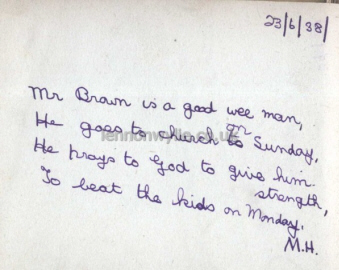 23/6/38/
Mr Brown is a good wee man,
He goes to church to on Sunday,
He prays to God to give him
strength,
To beat the kids on Monday.
M.H.
lennonwylie.co.uk